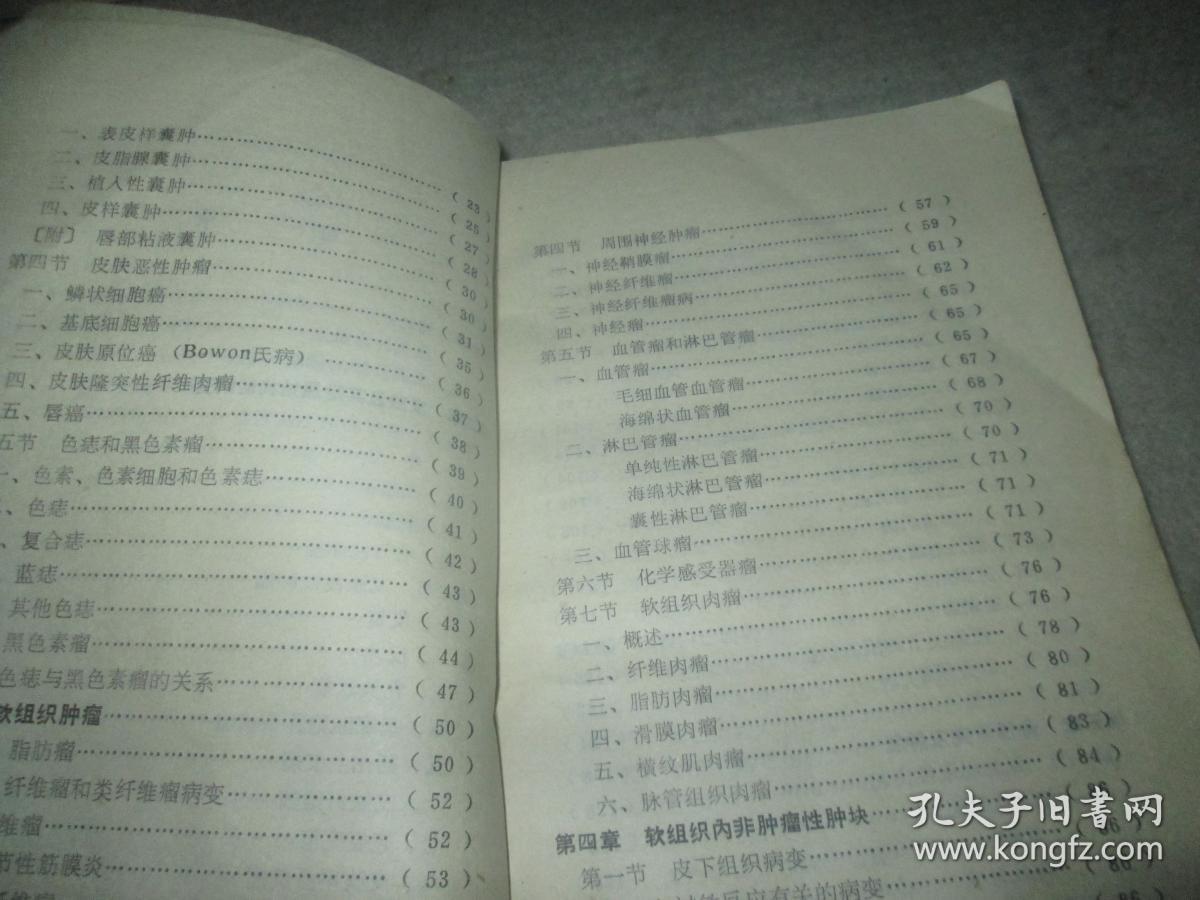 一、表皮样囊肿……………………（23）
二、皮脂腺囊肿……………………（25）
三、植入性囊肿……………………（27）
四、皮样囊肿……………………（28）
〔附〕 唇部粘液囊肿……………………（30）
第四节 皮肤恶性肿瘤……………………（30）
一、鳞状细胞癌……………………（31）
二、基底细胞癌……………………（35）
三、皮肤原位癌（Bowon氏病）……………………（36）
四、皮肤隆突性纤维肉瘤……………………（37）
五、唇癌……………………（38）
五节 色痣和黑色素瘤……………………（39）
一、色素、色素细胞和色素痣……………………（40）
、色痣……………………（41）
、复合痣……………………（42）
蓝痣……………………（43）
其他色痣……………………（43）
黑色素瘤……………………（44）
色痣与黑色素瘤的关系……………………（47）
软组织肿瘤……………………（50）
脂肪瘤……………………（50）
纤维瘤和类纤维瘤病变……………………（52）
维瘤……………………（52）
节性筋膜炎……………………（53）
第四节 周围神经肿瘤……………………（57）
一、神经鞘膜瘤……………………（59）
二、神经纤维瘤……………………（61）
三、神经纤维瘤病……………………（62）
四、神经瘤……………………（65）
第五节 血管瘤和淋巴管瘤……………………（65）
一、血管瘤……………………（65）
毛细血管血管瘤……………………（67）
海绵状血管瘤……………………（68）
二、淋巴管瘤……………………（70）
单纯性淋巴管瘤……………………（70）
海绵状淋巴管瘤……………………（71）
囊性淋巴管瘤……………………（71）
三、血管球瘤……………………（71）
第六节 化学感受器瘤……………………（73）
第七节 软组织肉瘤……………………（76）
一、概述……………………（76）
二、纤维肉瘤……………………（78）
三、脂肪肉瘤……………………（80）
四、滑膜肉瘤……………………（81）
五、横纹肌肉瘤……………………（83）
六、脉管组织肉瘤……………………（84）
第四章 软组织内非肿瘤性肿块……………………（86）
第一节 皮下组织病变……………………（86）
反应有关的病变……………………（86）
孔夫子旧书网
www.kongfz.com